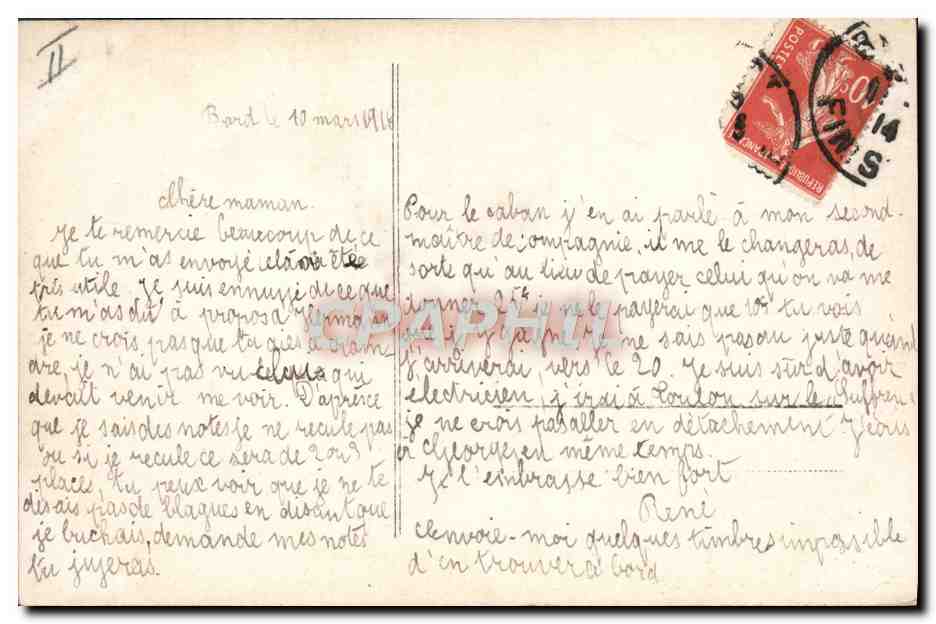 II
Bord le 10 mars 191
Chère maman.
Je te remercie beaucoup de ce
que tu m'as envoyé cela a été
très utile. Je suis ennuyé de ce que
tu m'as dit à propos a
je ne crois pas que tu aies à
je n'ai pas vu celui qui
devait venir me voir. D'après ce
que je sais des notes je ne recule pas
ou si je recule ce sera de 2 ou 3
places, tu peux voir que je ne te
disais pas de blagues en disant que
je buchais, demande mes notes
tu jugeras.
Pour le caban j'en ai parlé à mon second-
maître de compagnie, il me le changeras, de
sorte qu'au lieu de payer celui qu'on va me
donner 25f je ne le payerai que 10f tu vois
ne sais pas au juste quand
j'arriverai vers le 20. Je suis sûr d'avoir
électricien, j'irai à Toulon sur le Suffren,
je ne crois pas aller en détachement J'écris
à George en même temps.
Je t'embrasse bien fort
René
Renvoie-moi quelques timbres impossible
d'en trouver à bord
POSTES
10
REPUBLIQUE FRANCAISE
14
FINIS
CPAPHIL